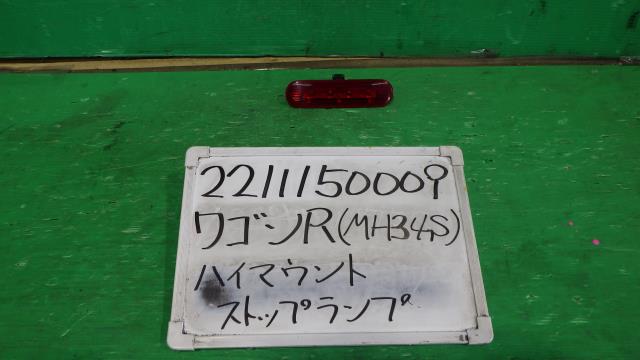 2211150009
ワゴンR(MH34S)
ハイマウント
ストップランプ